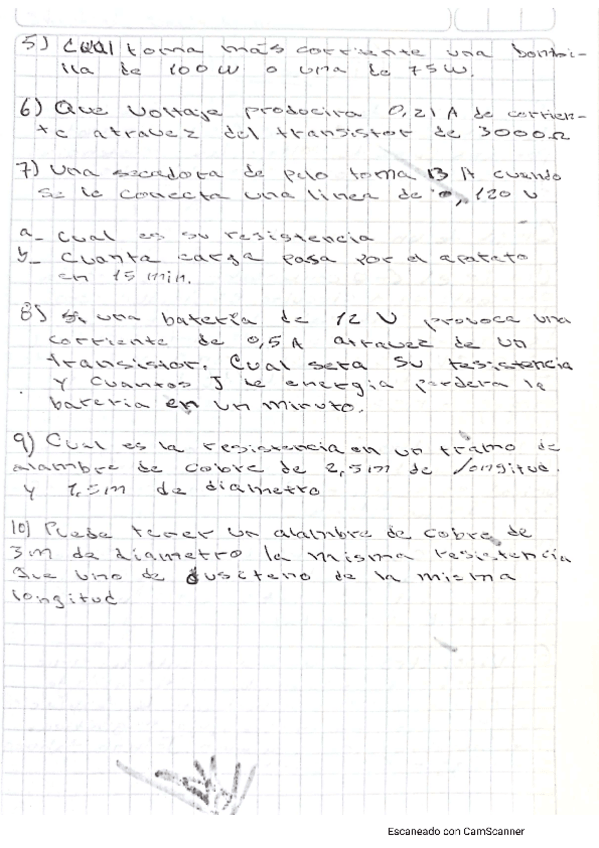 5) Cual toma más corriente una bombi-
lla de 100 W o una de 75 W.
6) Que Voltaje producira 0,21 A de corrien-
te atravez del transistor de 3000 Ω
7) Una secadora de pelo toma 13 A cuando
se le conecta una linea de 120 V
a_ Cual es su resistencia
b_ Cuanta carga pasa por el aparato
en 15 min.
8) Si una batería de 12 V provoca una
corriente de 0,5 A atravez de un
transistor. Cual sera su resistencia
Y Cuantos J de energia perdera la
bateria en un minuto.
9) Cual es la resistencia en un tramo de
alambre de cobre de 2,5 m de longitud.
y de diametro
10) Puede tener un alambre de cobre de
3 m de diametro la misma resistencia
que uno de de la misma
longitud
Escaneado con CamScanner